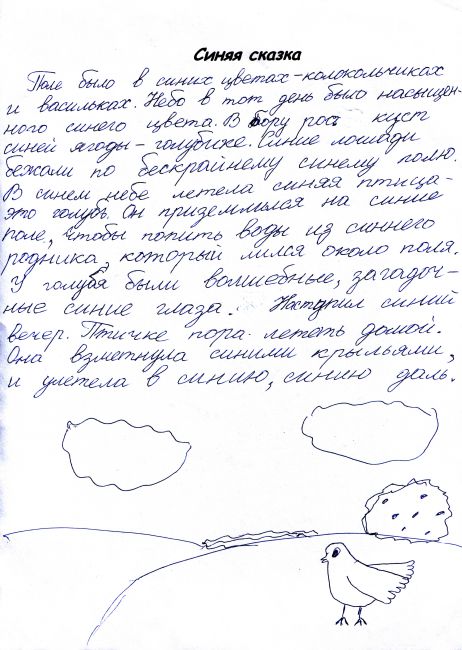 Синяя сказка
Поле было в синих цветах-колокольчиках
и васильках. Небо в тот день было насыщен-
ного синего цвета. В бору рос куст
синей ягоды-голубике. Синие лошади
бежали по бескрайнему синему полю.
В синем небе летела синяя птица-
это голубь. Он приземлился на синие
поле, чтобы попить воды из синнего
родника, который лился около поля.
У голубя были волшебные, загадоч-
ные синие глаза. Наступил синий
вечер. Птичке пора летать домой.
Она взметнула синими крыльями,
и улетела в синию, синию даль.